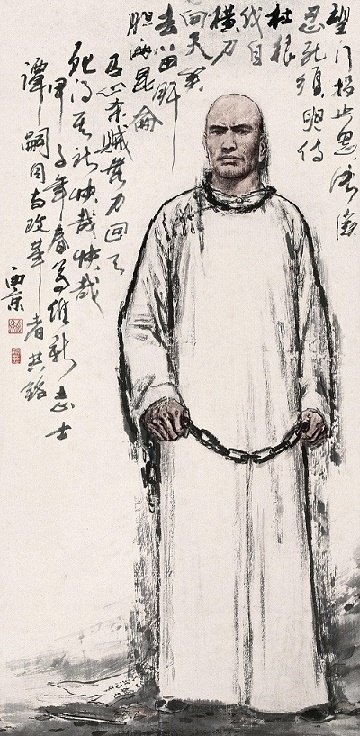 望门投止思张俭
忍死须臾待
杜根
我自
横刀
向天笑
去留肝
胆两昆仑
有心杀贼无力回天
死得其所快哉快哉
甲子年春写维新志士
谭嗣同与改革者共勉
西京